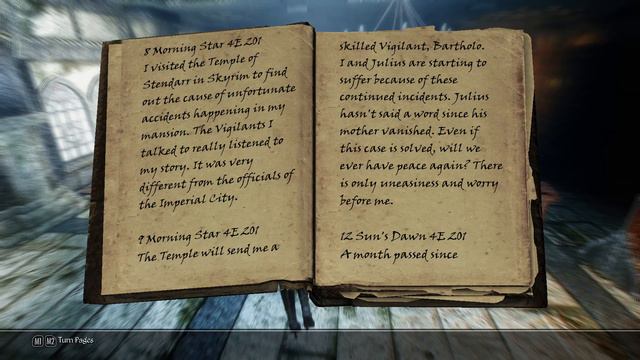 8 Morning Star 4E201
I visited the Temple of
Stendarr in Skyrim to find
out the cause of unfortunate
accidents happening in my
mansion. The Vigilants I
talked to really listened to
my story. It was very
different from the officials of
the Imperial City.
9 Morning Star 4E201
The Temple will send me a
skilled Vigilant, Bartholo.
I and Julius are starting to
suffer because of these
continued incidents. Julius
hasn't said a word since his
mother vanished. Even if
this case is solved, will we
ever have peace again? There
is only uneasiness and worry
before me.
12 Sun's Dawn 4E201
A month passed since
M1 M2 Turn Pages